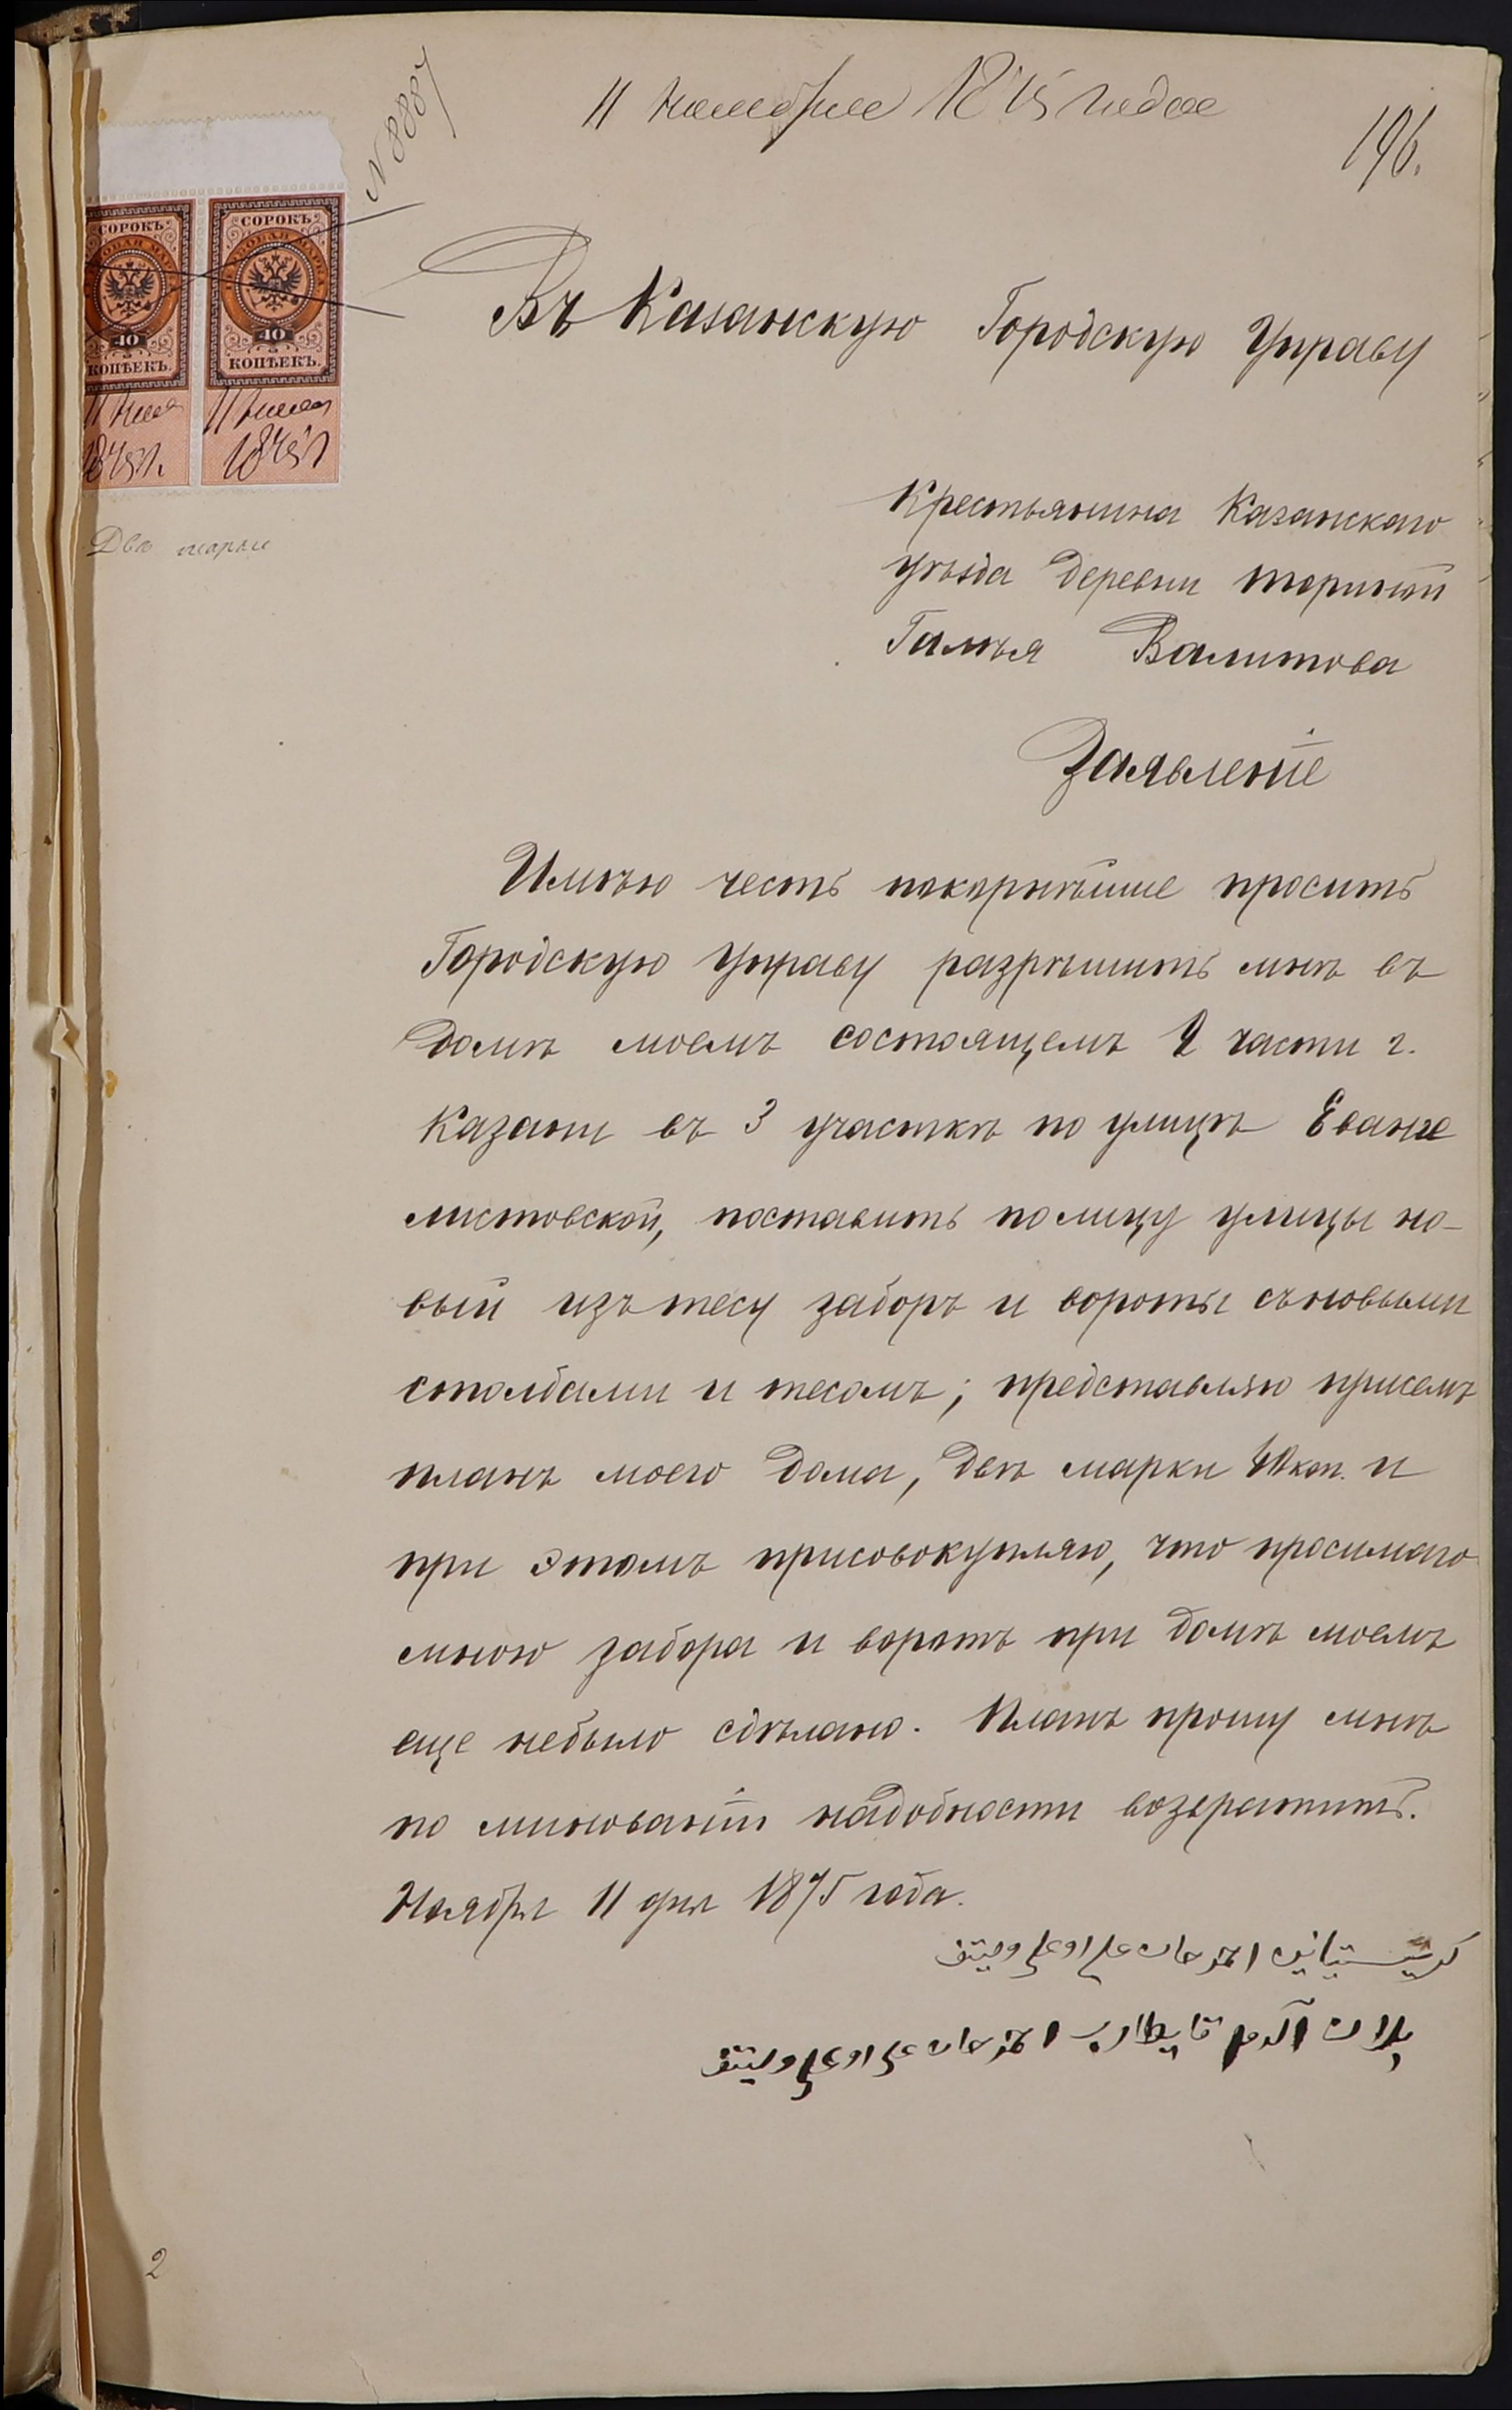 № 8887
11 ноября 1875 года
196.
СОРОКЪ
40
КОПѢЕКЪ.
СОРОКЪ
40
КОПѢЕКЪ.
11 ноя
1875 г.
11 нояб
1875 г
Двѣ марки
Въ Казанскую Городскую Управу
Крестьянина Казанскаго
уѣзда деревни
Валитова
Заявленіе
Имѣю честь покорнѣйше просить
Городскую Управу разрѣшить мнѣ въ
домѣ моемъ состоящемъ части г.
Казани въ 3 участкѣ по улицѣ Еванге
листовской, поставить по лицу улицы но-
вый изъ тесу заборъ и вороты съ новыми
столбами и тесомъ; представляю присемъ
планъ моего дома, двѣ марки 40 коп. и
при этомъ присовокупляю, что просимаго
мною забора и воротъ при домѣ моемъ
еще небыло сдѣлано. Планъ прошу мнѣ
по минованіи надобности возвратить.
Ноября 11 дня 1875 года.
2